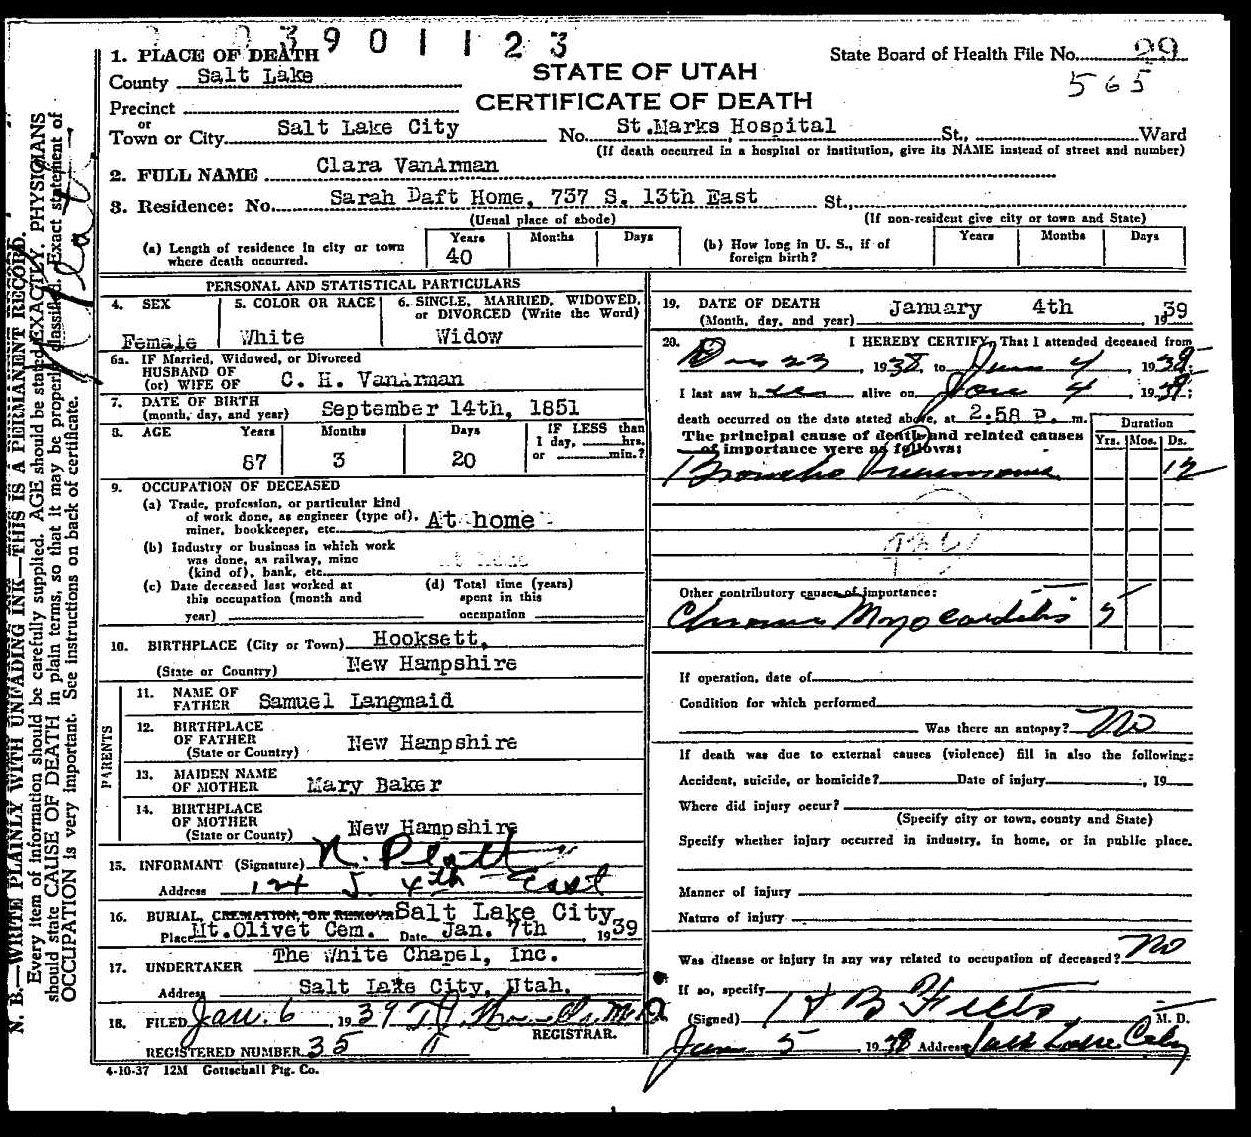 3901123
1. PLACE OF DEATH
State Board of Health File No. 29
County Salt Lake
STATE OF UTAH
565
CERTIFICATE OF DEATH
Precinct
or
Town or City Salt Lake City No. St.Marks Hospital St., Ward
(If death occurred in a hospital or institution, give its NAME instead of street and number)
2. FULL NAME Clara VanArman
3. Residence: No. Sarah Daft Home, 737 S. 13th East St.,
(Usual place of abode) (If non-resident give city or town and State)
(a) Length of residence in city or town where death occurred. Years 40 Months Days
(b) How long in U. S., if of foreign birth? Years Months Days
PERSONAL AND STATISTICAL PARTICULARS
4. SEX Female
5. COLOR OR RACE White
6. SINGLE, MARRIED, WIDOWED, or DIVORCED (Write the Word) Widow
6a. IF Married, Widowed, or Divorced
HUSBAND OF
(or) WIFE OF C. H. VanArman
7. DATE OF BIRTH
(month, day, and year) September 14th, 1851
8. AGE Years Months Days IF LESS than
1 day, hrs.
87 3 20 or min.?
9. OCCUPATION OF DECEASED
(a) Trade, profession, or particular kind
of work done, as engineer (type of),
miner, bookkeeper, etc. At home
(b) Industry or business in which work
was done, as railway, mine
(kind of), bank, etc.
(c) Date deceased last worked at
this occupation (month and
year)
(d) Total time (years)
spent in this
occupation
10. BIRTHPLACE (City or Town) Hooksett,
(State or Country) New Hampshire
PARENTS
11. NAME OF
FATHER Samuel Langmaid
12. BIRTHPLACE
OF FATHER
(State or Country) New Hampshire
13. MAIDEN NAME
OF MOTHER Mary Baker
14. BIRTHPLACE
OF MOTHER
(State or County) New Hampshire
15. INFORMANT (Signature) N. Platt
Address 124 S. 4th East
16. BURIAL, CREMATION, OR REMOVAL Salt Lake City
Place Mt.Olivet Cem. Date Jan. 7th, 1939
17. UNDERTAKER The White Chapel, Inc.
Address Salt Lake City, Utah.
18. FILED Jan. 6 1939
REGISTRAR.
REGISTERED NUMBER 35
4-10-37 12M Gottschall Ptg. Co.
19. DATE OF DEATH
(Month, day, and year) January 4th 1939
20. I HEREBY CERTIFY, That I attended deceased from
Dec 23, 1938 to Jan 4, 1939
I last saw her alive on Jan 4, 1939;
death occurred on the date stated above, at 2:58 P. m.
The principal cause of death and related causes
of importance were as follows:
Duration
Yrs. Mos. Ds.
Broncho Pneumonia 12
Other contributory causes of importance:
Chronic Myocarditis 5
If operation, date of
Condition for which performed
Was there an autopsy? No
If death was due to external causes (violence) fill in also the following:
Accident, suicide, or homicide? Date of injury, 19
Where did injury occur?
(Specify city or town, county and State)
Specify whether injury occurred in industry, in home, or in public place.
Manner of injury
Nature of injury
Was disease or injury in any way related to occupation of deceased? No
If so, specify
(Signed) M. D.
Jan 5, 1939 Address Salt Lake City
N. B.—WRITE PLAINLY WITH UNFADING INK—THIS IS A PERMANENT RECORD.
Every item of information should be carefully supplied. AGE should be stated EXACTLY. PHYSICIANS
should state CAUSE OF DEATH in plain terms, so that it may be properly classified. Exact statement of
OCCUPATION is very important. See instructions on back of certificate.